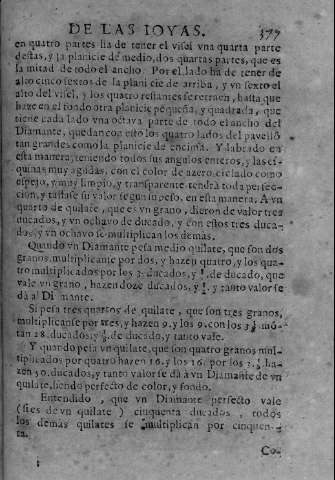 DE LAS IOYAS. 377
en quatro partes ha de tener el visel vna quarta parte
destas, y la planicie de medio, dos quartas partes, que es
la mitad de todo el ancho. Por el lado ha de tener de
alto cinco sextos de la planicie de arriba, y vn sexto el
alto del visel, y los quatro restantes se retraen, hasta que
haze en el fondo otra planicie pequeña, y quadrada, que
tiene cada lado vna octava parte de todo el ancho del
Diamante, quedan con esto los quatro lados del pavellõ
tan grandes como la planicie de encima. Y labrado en
esta manera, teniendo todos sus angulos enteros, y las es-
quinas muy agudas, con el color de azero, ciclado como
espejo, y muy limpio, y transparente tendrà toda perfec-
cion, y tassase su valor segun su peso, en esta manera. A vn
quarto de quilate, que es vn grano, dieron de valor tres
ducados, y vn ochavo de ducado, y con estos tres duca-
dos, y vn ochavo se multiplican los demàs.
Quando vn Diamante pesa medio quilate, que son dos
granos, multiplicante por dos, y hazen quatro, y los qua-
tro multiplicados por los 3. ducados, y 1/8. de ducado, que
vale vn grano, hazen doze ducados, y 1/2. y tanto valor se
dà al Diamante.
Si pesa tres quartos de quilate, que son tres granos,
multiplicanse por tres, y hazen 9. y los 9. con los 3 1/8. mõ-
tan 28. ducados, y 1/8. de ducado, y tanto vale.
Y quando pesa vn quilate, que son quatro granos mul-
tiplicados por quatro hazen 16. y los 16. por los 3. 1/8 ha-
zen 50. ducados, y tanto valor se dà à vn Diamante de vn
quilate, siendo perfecto de color, y fondo.
Entendido, que vn Diamante perfecto vale
(si es de vn quilate) cinquenta ducados, todos
los demàs quilates se multiplican por cinquen-
ta.
Co-